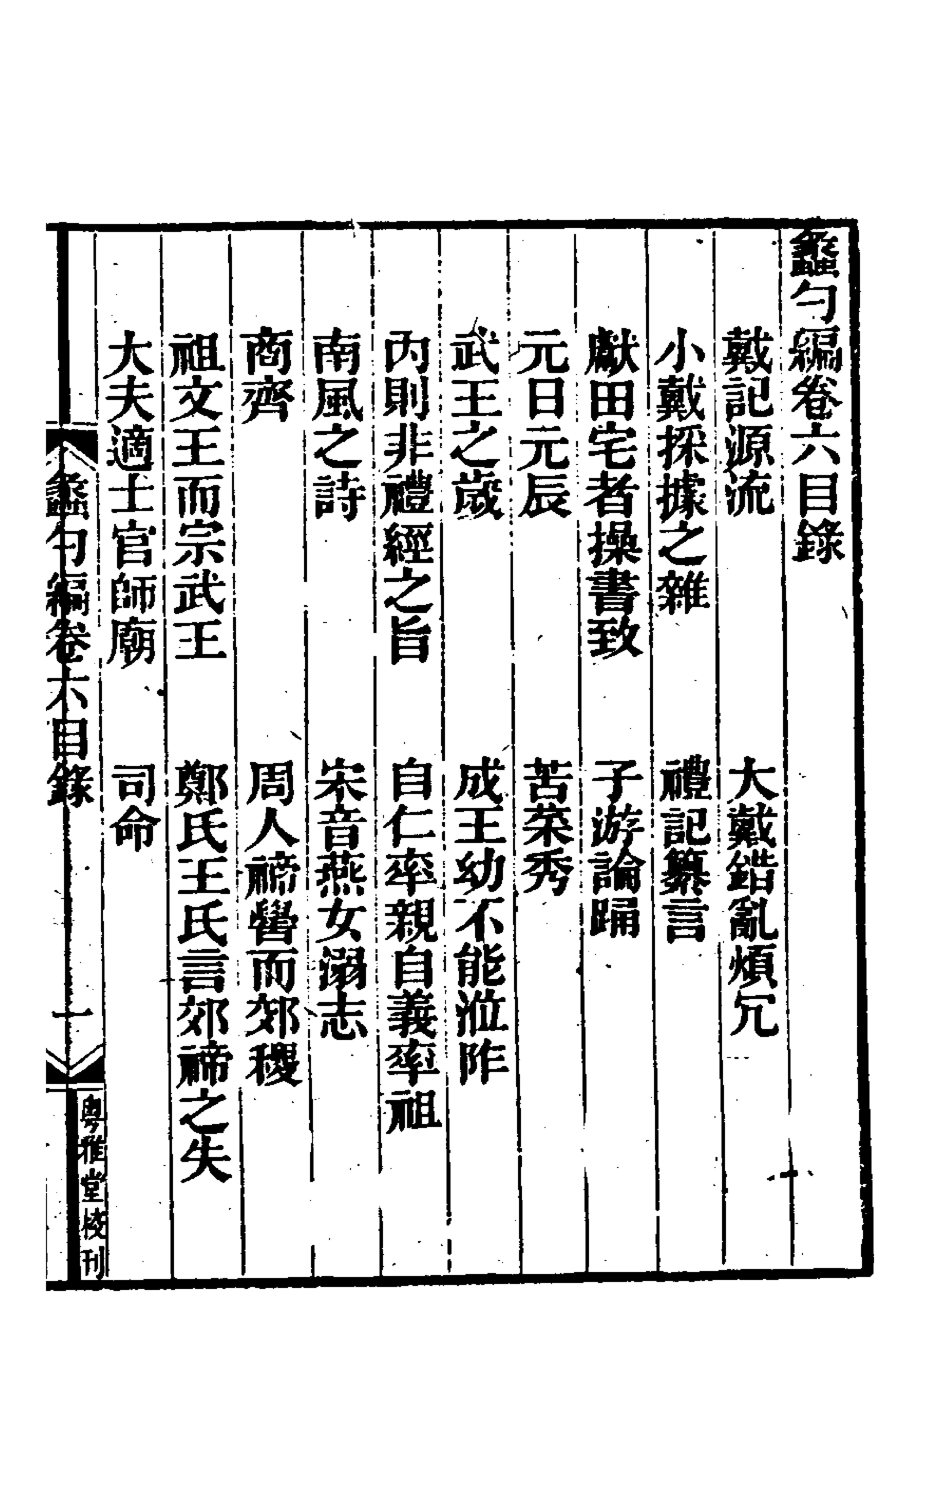 蠡勺編卷六目錄
戴記源流　大戴錯亂煩冗
小戴採據之雜　禮記纂言
獻田宅者操書致　子游論踊
元日元辰　苦菜秀
武王之歲　成王幼不能涖阼
內則非禮經之旨　自仁率親自義率祖
南風之詩　宋音燕女溺志
商齊　周人禘嚳而郊稷
祖文王而宗武王　鄭氏王氏言郊禘之失
大夫適士官師廟　司命
蠡勺編卷六目錄　一　粤雅堂校刊